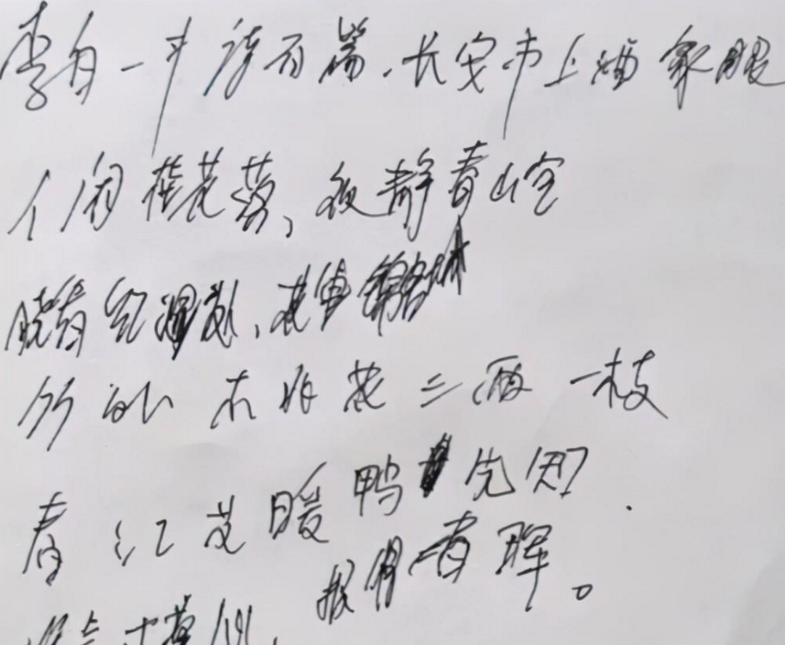 李白一斗诗百篇，长安市上酒家眠
人闲桂花落、夜静春山空
晓看红湿处、花重锦官城
竹外桃花三两一枝
春江水暖鸭先知.
报得春晖。